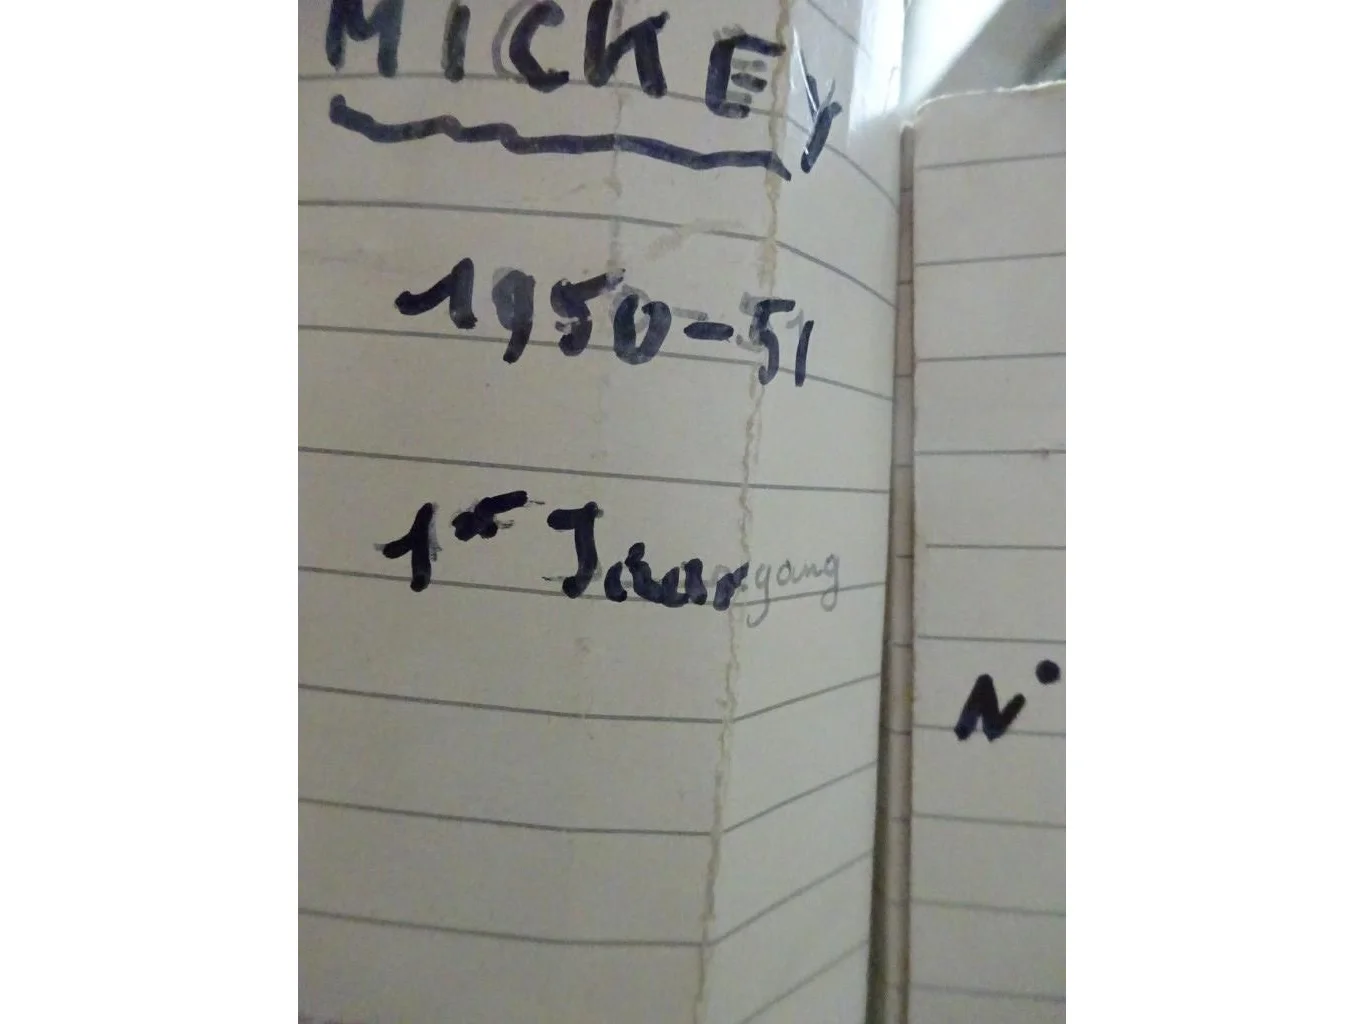 MICKEY
1950-51
1er Jaargang
N°